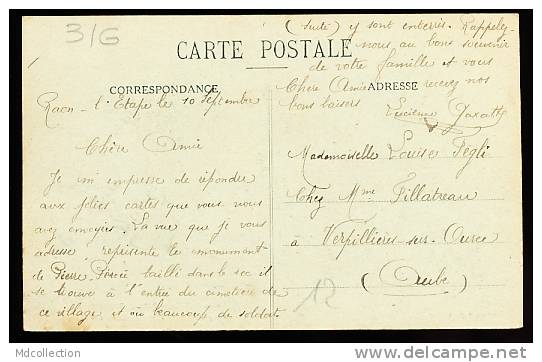 3/G
CARTE POSTALE
CORRESPONDANCE
ADRESSE
Raon-l'Etape le 10 Septembre
Chère Amie
Je m'empresse de répondre
aux jolies cartes que vous nous
avez envoyées. La vue que je vous
adresse, représente le monument
de Pierre Percée taillé dans le roc il
se trouve à l'entrée du cimetière de
ce village et où beaucoup de soldats
(suite) y sont enterrés. Rappelez-
nous au bons souvenir
de votre famille et vous
Chère Amie recevez nos
bons baisers
Mademoiselle Louise Pegli
Chez Mme Fillatreau
à Verpillières-sur-Ource
(Aube)
12
MaCollection
www.delcampe.net